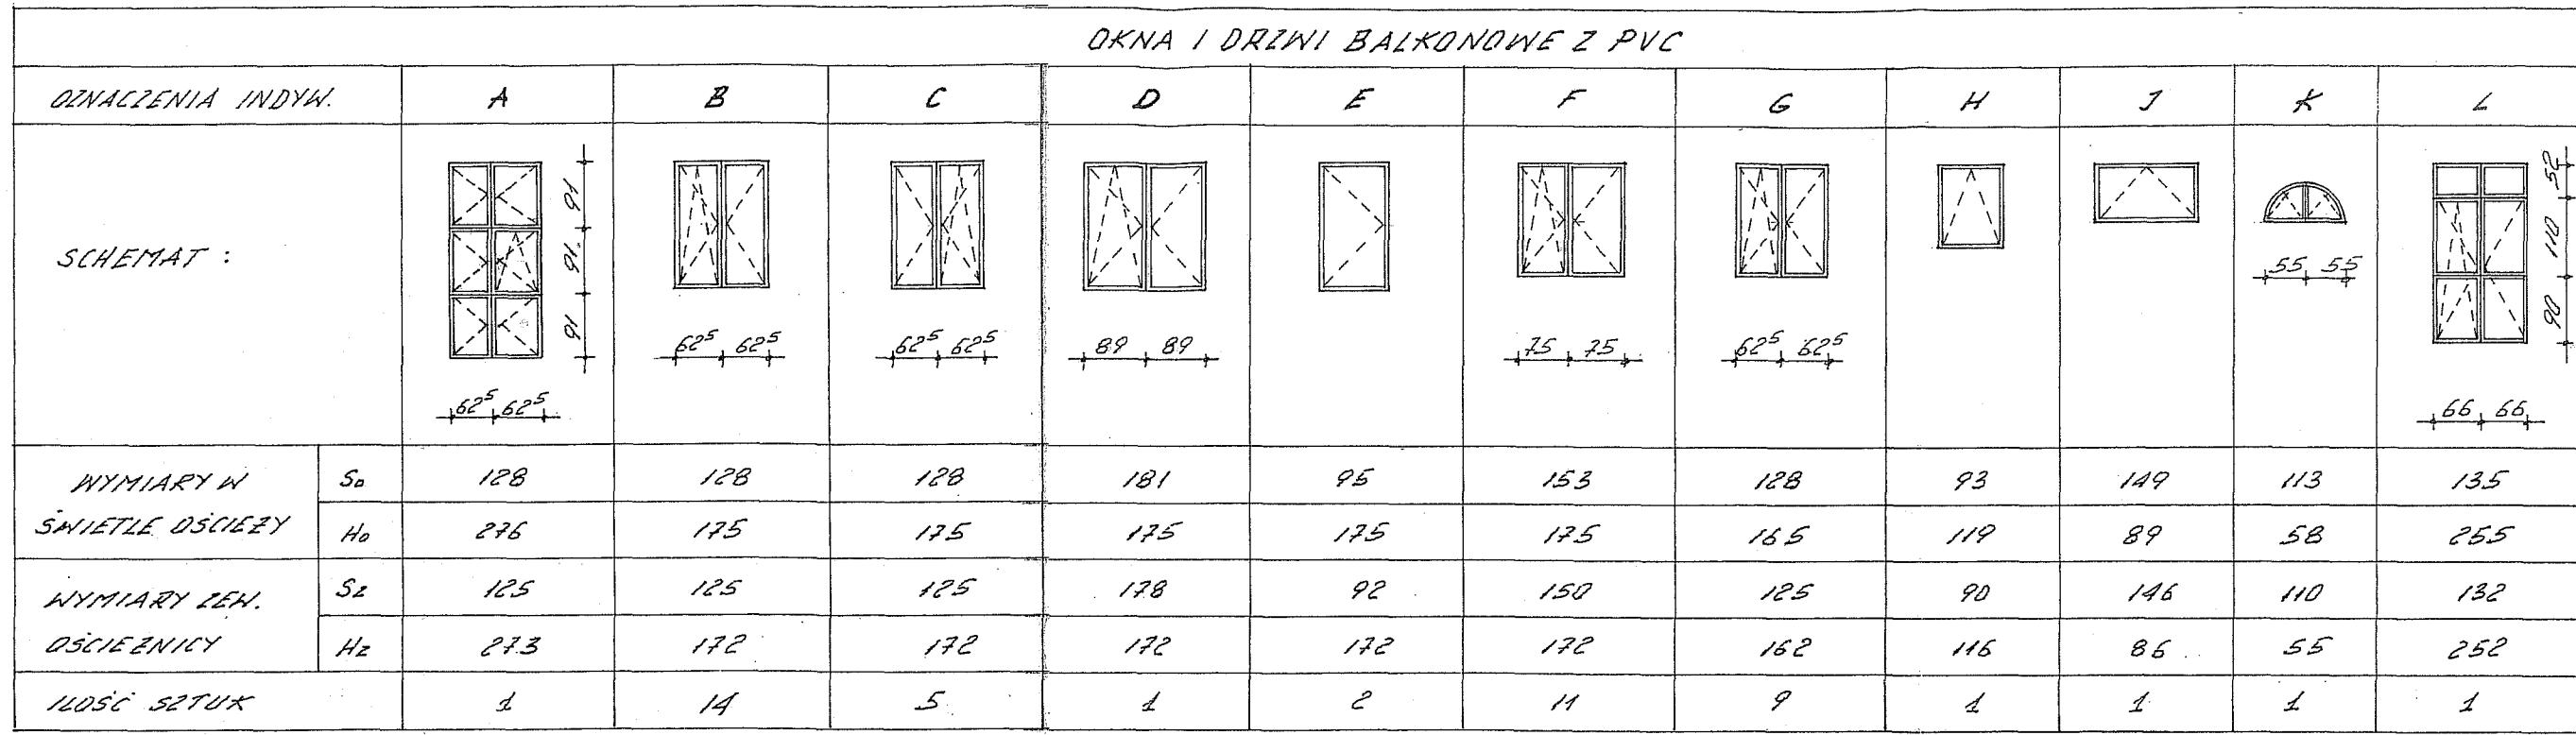 OKNA I DRZWI BALKONOWE Z PVC
OZNACZENIA INDYW. A B C D E F G H J K L
SCHEMAT :
91 91 91
62⁵ 62⁵
62⁵ 62⁵
62⁵ 62⁵
89 89
75 75
62⁵ 62⁵
55 55
52 110 90
66 66
WYMIARY W ŚWIETLE OŚCIEŻY
So 128 128 128 181 95 153 128 93 149 113 135
Ho 276 175 175 175 175 175 165 119 89 58 255
WYMIARY ZEW. OŚCIEŻNICY
Sz 125 125 125 178 92 150 125 90 146 110 132
Hz 273 172 172 172 172 172 162 116 86 55 252
ILOŚĆ SZTUK 1 14 5 1 2 11 9 1 1 1 1